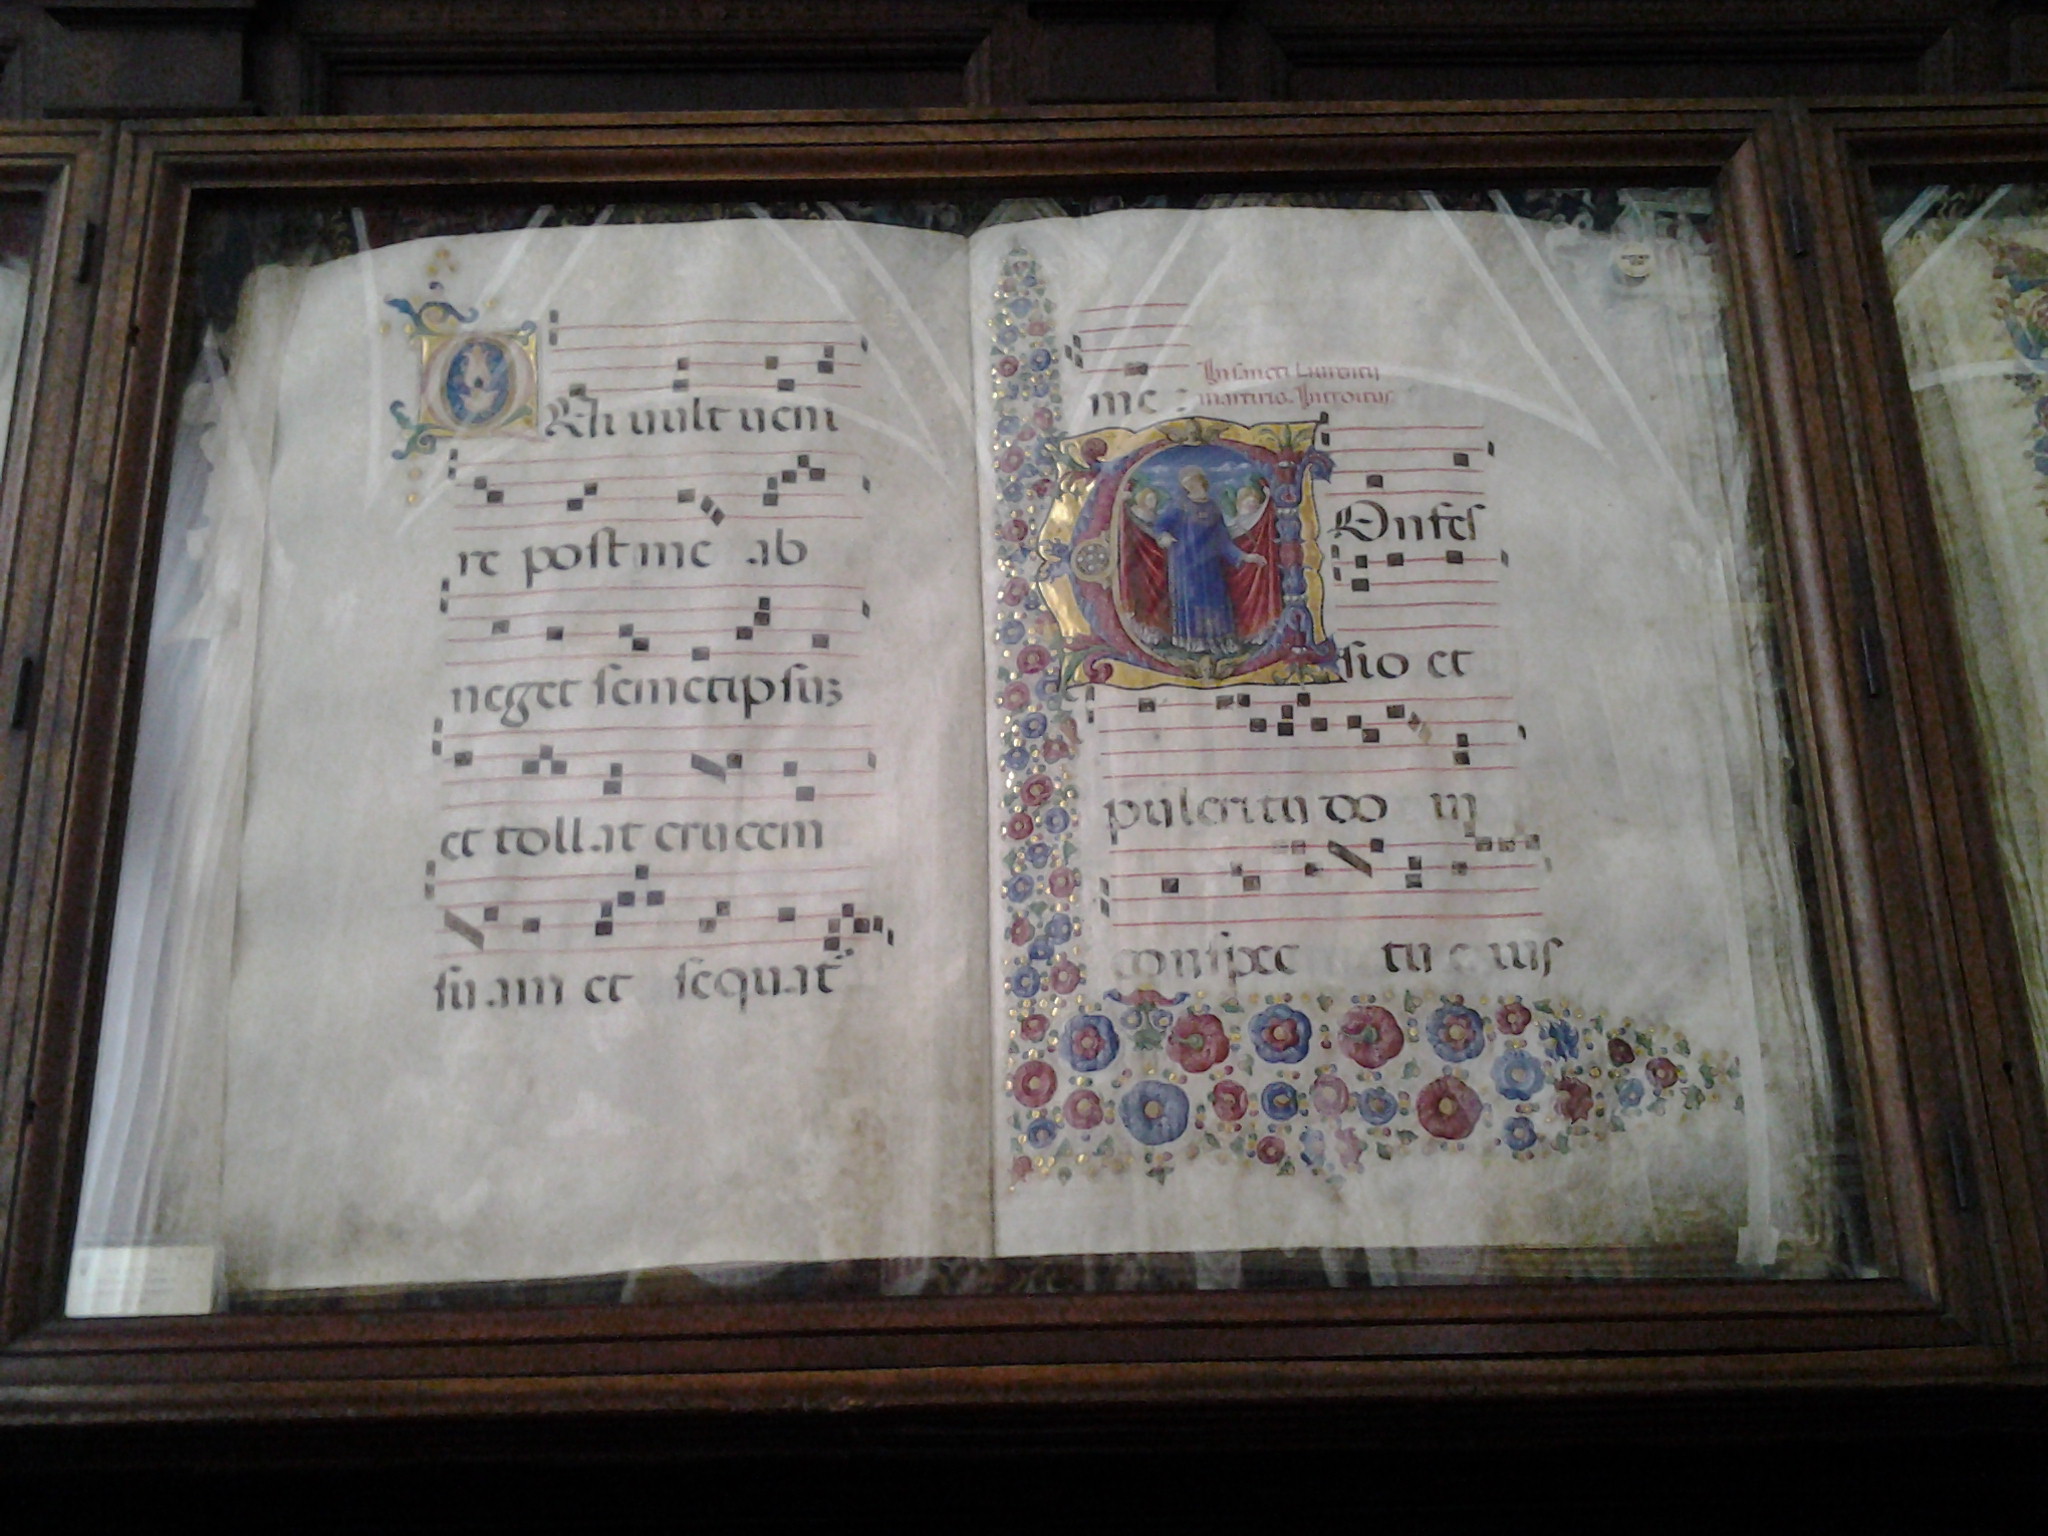 QUi uult ueni
re post me ab
neget semetipsuz
et tollat crucem
suam et sequat
me :
In sancti Laurentij
martiris. Introitus
COnfes
sio et
pulcritudo in
conspec tu eius